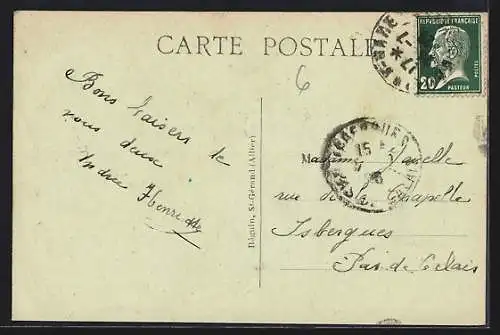 CARTE POSTALE
REPUBLIQUE FRANÇAISE
20c
POSTES
PASTEUR
6
Bons baisers de
nous deux
André Henriette
Béguin, St-Gérand (Allier)
Madame
rue de la Chapelle
Isbergues
Pas-de-Calais